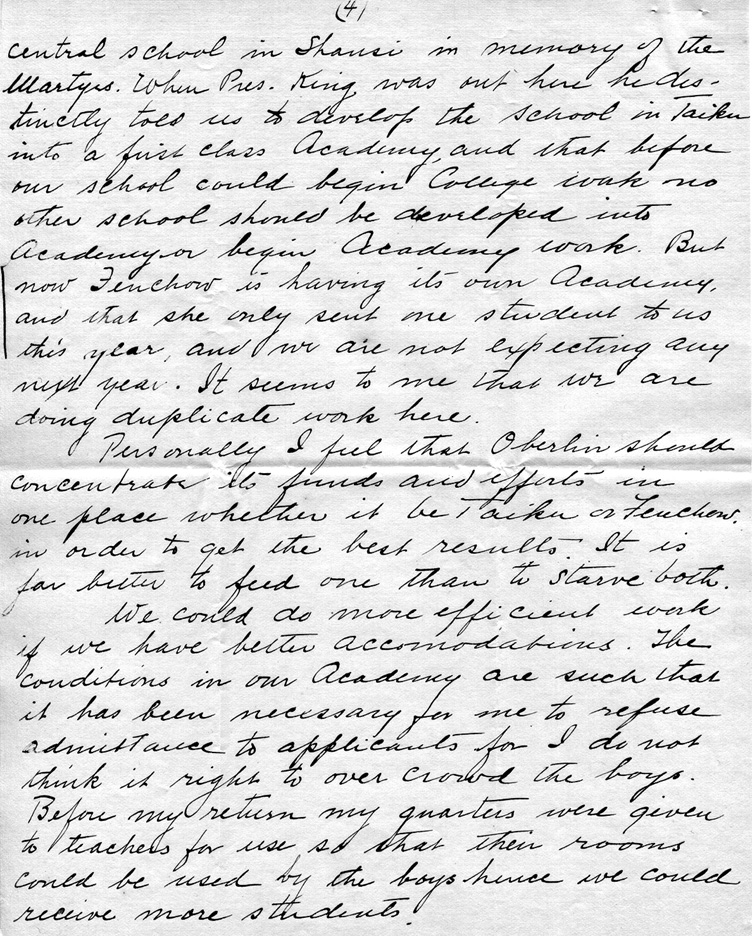 (4)
central school in Shansi in memory of the
Martyrs. When Pres. King was out here he dis-
tinctly told us to develop the school in Taiku
into a first class Academy, and that before
our school could begin College work no
other school should be developed into
Academy or begin Academy work. But
now Fenchow is having its own Academy,
and that she only sent one student to us
this year, and we are not expecting any
next year. It seems to me that we are
doing duplicate work here.
Personally I feel that Oberlin should
concentrate its funds and efforts in
one place whether it be Taiku or Fenchow.
in order to get the best results. It is
far better to feed one than to starve both.
We could do more efficient work
if we have better accomodations. The
conditions in our Academy are such that
it has been necessary for me to refuse
admittance to applicants for I do not
think it right to over crowd the boys.
Before my return my quarters were given
to teachers for use so that their rooms
could be used by the boys hence we could
receive more students.